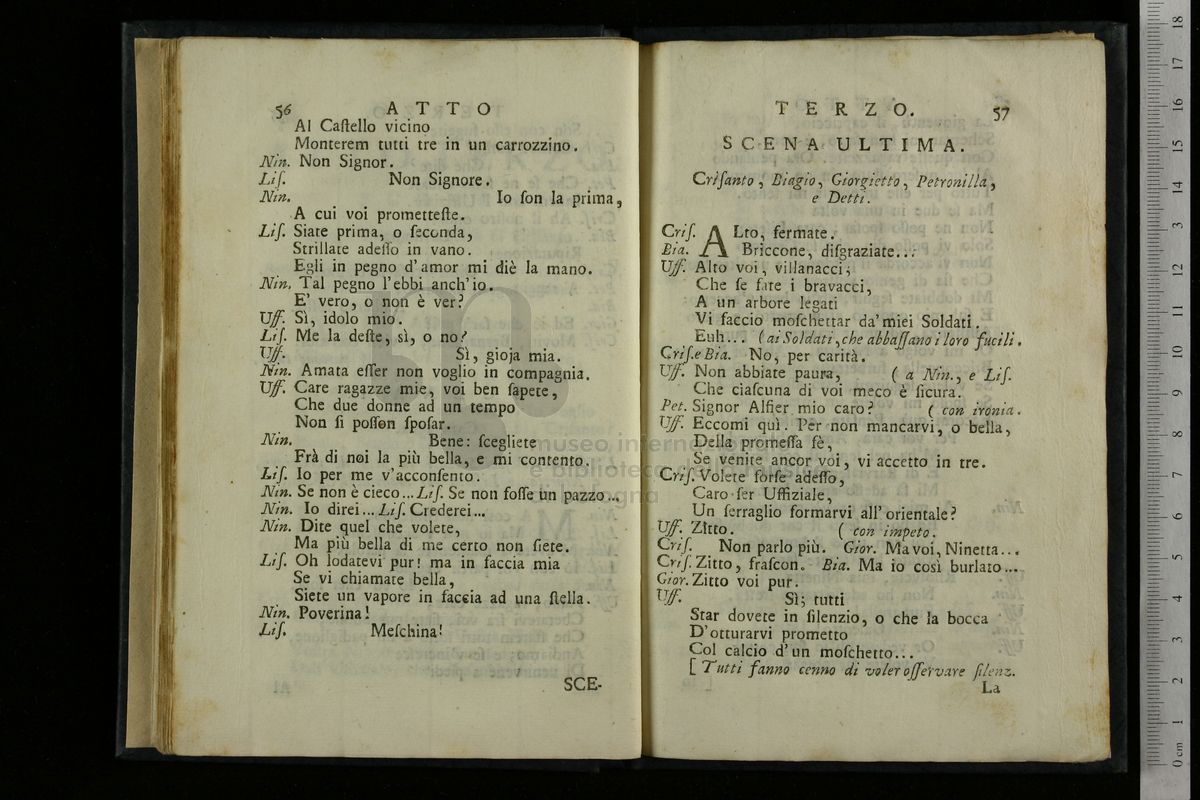 56 ATTO
Al Caſtello vicino
Monterem tutti tre in un carrozzino.
Nin. Non Signor.
Liſ. Non Signore.
Nin. Io ſon la prima,
A cui voi prometteſte.
Liſ. Siate prima, o ſeconda,
Strillate adeſſo in vano.
Egli in pegno d'amor mi diè la mano.
Nin. Tal pegno l'ebbi anch'io.
E' vero, o non è ver?
Uff. Sì, idolo mio.
Liſ. Me la deſte, sì, o no?
Uff. Sì, gioja mia.
Nin. Amata eſſer non voglio in compagnia.
Uff. Care ragazze mie, voi ben ſapete,
Che due donne ad un tempo
Non ſi poſſon ſpoſar.
Nin. Bene: ſcegliete
Frà di noi la più bella, e mi contento.
Liſ. Io per me v'acconſento.
Nin. Se non è cieco... Liſ. Se non foſſe un pazzo...
Nin. Io direi... Liſ. Crederei...
Nin. Dite quel che volete,
Ma più bella di me certo non ſiete.
Liſ. Oh lodatevi pur! ma in faccia mia
Se vi chiamate bella,
Siete un vapore in faccia ad una ſtella.
Nin. Poverina!
Liſ. Meſchina!
SCE-
TERZO. 57
SCENA ULTIMA.
Criſanto, Biagio, Giorgietto, Petronilla,
e Detti.
Criſ. ALto, fermate.
Bia. Briccone, diſgraziate...
Uff. Alto voi, villanacci;
Che ſe fate i bravacci,
A un arbore legati
Vi faccio moſchettar da'miei Soldati.
Euh... (ai Soldati, che abbaſſano i loro fucili.
Criſ. e Bia. No, per carità.
Uff. Non abbiate paura, ( a Nin., e Liſ.
Che ciaſcuna di voi meco è ſicura.
Pet. Signor Alfier mio caro? ( con ironia.
Uff. Eccomi quì. Per non mancarvi, o bella,
Della promeſſa fè,
Se venite ancor voi, vi accetto in tre.
Criſ. Volete forſe adeſſo,
Caro ſer Uffiziale,
Un ſerraglio formarvi all'orientale?
Uff. Zitto. ( con impeto.
Criſ. Non parlo più. Gior. Ma voi, Ninetta...
Criſ. Zitto, fraſcon. Bia. Ma io così burlato...
Gior. Zitto voi pur.
Uff. Sì; tutti
Star dovete in ſilenzio, o che la bocca
D'otturarvi prometto
Col calcio d'un moſchetto...
[ Tutti fanno cenno di voler oſſervare ſilenz.
La